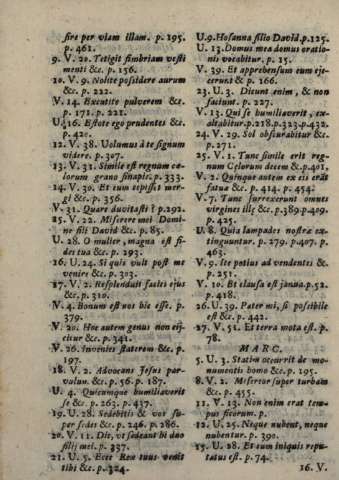 sire per viam illam. p. 195.
p. 461.
9. V. 20. Tetigit fimbriam vesti
menti &c. p. 156.
10. V. 9. Nolite possidere aurum
&c. p. 222.
V. 14. Excutite pulverem &c.
p. 171. p. 221.
U. 16. Estote ego prudentes &c.
p. 420.
12. V. 38. Volumus à te signum
videre. p. 307.
13. V. 31. Simile est regnum cæ-
lorum grano sinapis. p. 333.
14. V. 30. Et cum cæpisset mer-
gi &c. p. 356.
V. 31. Quare dubitasti? p. 292.
15. V. 22. Miserere mei Domi-
ne fili David &c. p. 85.
U. 28. O mulier, magna est fi-
des tua &c. p. 293.
16. U. 24. Si quis vult post me
venire &c. p. 303.
17. V. 2. Resplenduit facies ejus
&c. p. 310.
V. 4. Bonum est nos hic esse. p.
379.
V. 20. Hoc autem genus non eij-
citur &c. p. 341.
V. 26. Invenies staterem &c. p.
197.
18. V. 2. Advocans Jesus par-
vulum. &c. p. 56. p. 187.
U. 4. Quicumque humiliaverit
se &c. p. 263. p. 437.
19. U. 28. Sedebitis & vos su-
per sedes &c. p. 246. p. 286.
20. V. 21. Dic, ut sedeant hi duo
filij mei. p. 337.
21. U. 5. Ecce Rex tuus venit
tibi &c. p. 324.
U. 9. Hosanna filio David. p. 125.
U. 13. Domus mea domus oratio-
nis vocabitur. p. 15.
V. 39. Et apprehensum eum eje-
cerunt & p. 166.
23. U. 3. Dicunt enim, & non
faciunt. p. 227.
V. 13. Qui se humiliaverit, ex-
altabitur. p. 218. p. 323. p. 432.
24. V. 29. Sol obscurabitur &c.
p. 271.
25. V. 1. Tunc simile erit reg-
num Cælorum decem &c. p. 401.
V. 2. Quinque autem ex eis erāt
fatuæ &c. p. 414. p. 454.
V. 7. Tunc surrexerunt omnes
virgines illę &c. p. 389. p. 409.
p. 425.
U. 8. Quia lampades nostræ ex-
tinguuntur. p. 279. p. 407. p.
463.
V. 9. Ite potius ad vendentes &c.
p. 251.
V. 10. Et clausa est janua. p. 52.
p. 418.
26. U. 39. Pater mi, si possibile
est &c. p. 442.
27. V. 51. Et terra mota est. p.
78.
MARC.
5. U. 3. Statim occurrit de mo-
numentis homo &c. p. 195.
8. V. 2. Misereor super turbam
&c. p. 455.
11. V. 13. Non enim erat tem-
pus ficorum. p.
12. U. 25. Neque nubent, neque
nubentur. p. 390.
15. U. 28. Et cum iniquis repu-
tatus est. p. 74.
16. V.